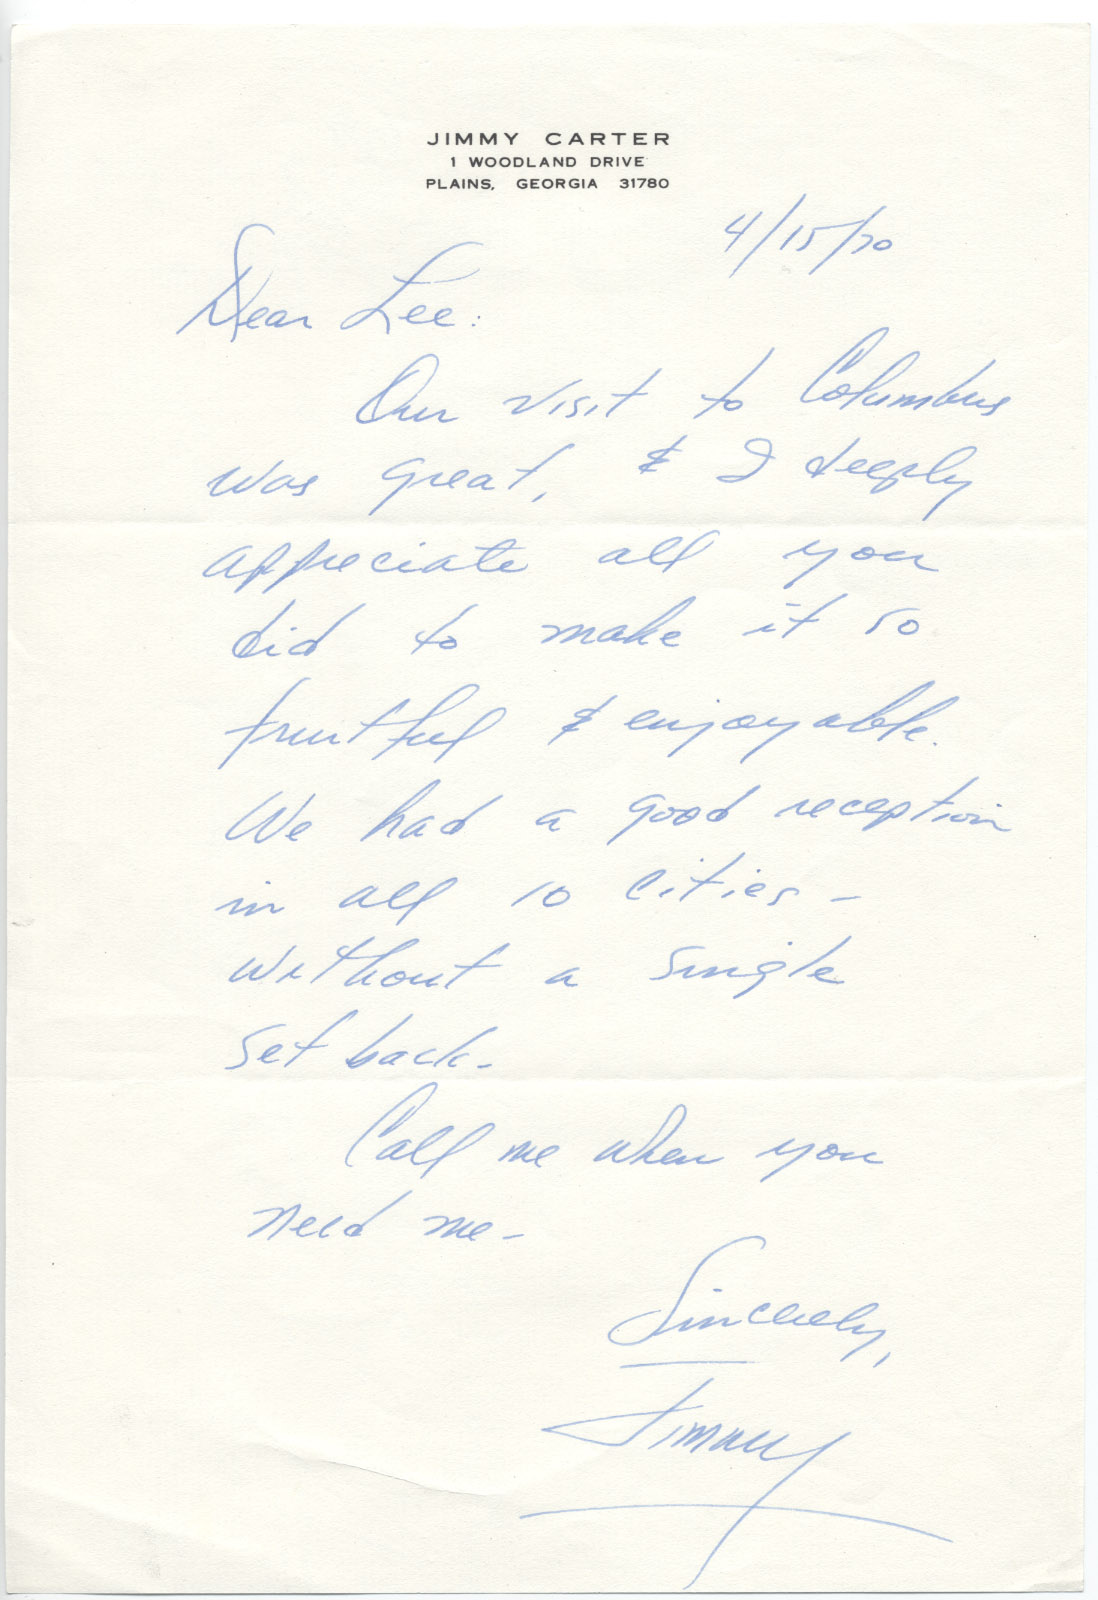 JIMMY CARTER
1 WOODLAND DRIVE
PLAINS, GEORGIA 31780
4/15/70
Dear Lee:
Our visit to Columbus
was great, & I deeply
appreciate all you
did to make it so
fruitful & enjoyable.
We had a good reception
in all 10 cities -
without a single
set back.
Call me when you
need me -
Sincerely,
Jimmy